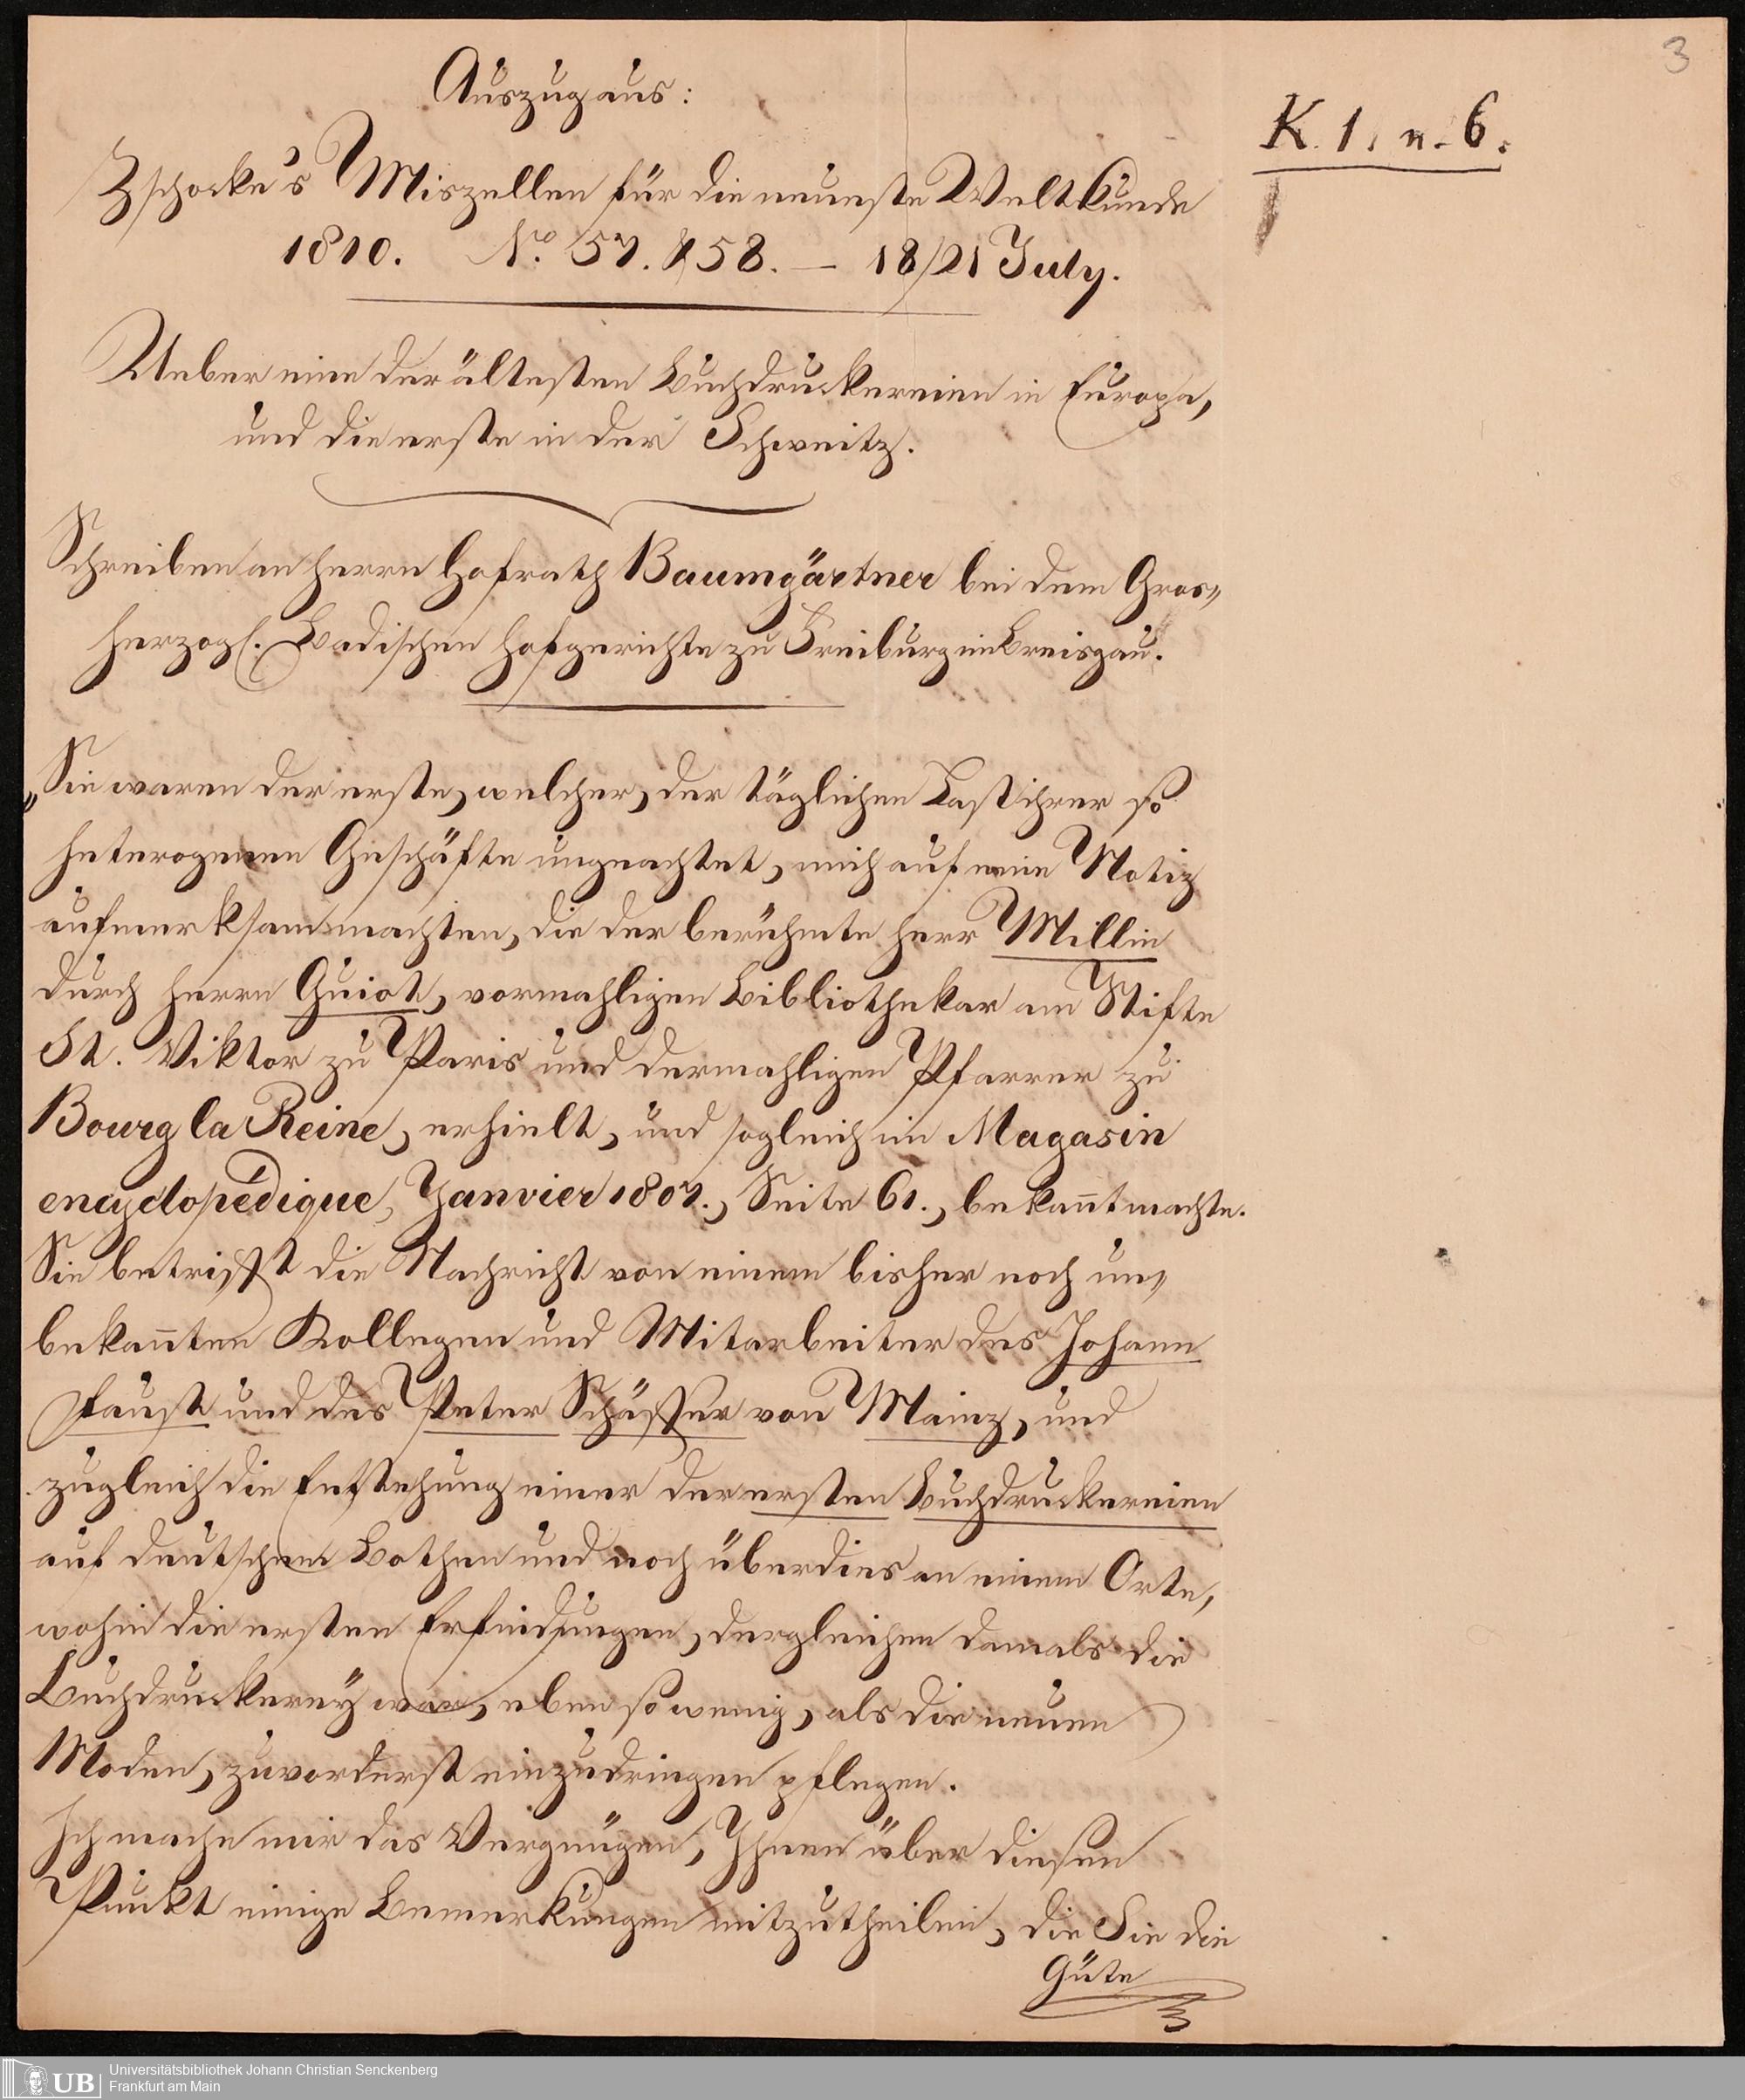 3
K. 1. n. 6.
Auszug aus:
Zschocke's Miszellen für die neueste Weltkunde
1810. No. 57. & 58. — 18/21 July.
Ueber eine der ältesten Buchdruckereien in Europa,
und die erste in der Schweitz.
Schreiben an Herrn Hofrath Baumgärtner bei dem Gros„
herzogl. Badischen Hofgerichte zu Freiburg im Breisgau.
„Sie waren der erste, welcher, der täglichen Last ihrer so
heterogenen Geschäfte ungeachtet, mich auf eine Notiz
aufmerksam machten, die der berühmte Herr Millin
durch Herrn Guiot, vormahligen Bibliothekar am Stifte
St. Viktor zu Paris und dermahligen Pfarrer zu
Bourg la Reine, erhielt, und sogleich im Magasin
encyclopédique, Janvier 1807., Seite 61., bekannt machte.
Sie betrifft die Nachricht von einem bisher noch un„
bekannten Kollegen und Mitarbeiter des Johann
Faust und des Peter Schäffer von Mainz, und
zugleich die Entstehung einer der ersten Buchdruckereien
auf deutschem Bothen und noch überdies an einem Orte,
wohin die ersten Erfindungen, dergleichen damals die
Buchdruckerey war, eben so wenig, als die neuen
Moden, zuvorderst einzudringen pflegen.
Ich mache mir das Vergnügen, Ihnen über diesen
Punkt einige Bemerkungen mitzutheilen, die Sie die
Güte
UB Universitätsbibliothek Johann Christian Senckenberg
Frankfurt am Main